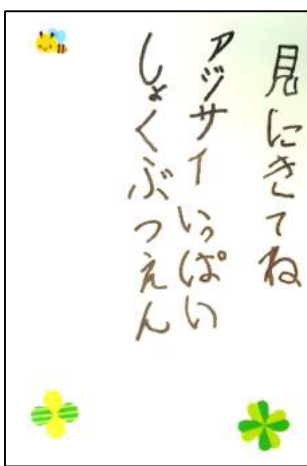 見にきてね
アジサイいっぱい
しょくぶつえん